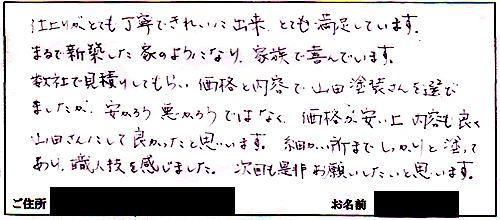 仕上りがとても丁寧できれいに出来、とても満足しています。
まるで新築した家のようになり、家族で喜んでいます。
数社で見積りしてもらい、価格と内容で山田塗装さんを選び
ましたが、安かろう悪かろうではなく、価格が安い上、内容も良く
山田さんにして良かったと思います。細かい所までしっかりと塗って
あり、職人技を感じました。次回も是非お願いしたいと思います。
ご住所 お名前